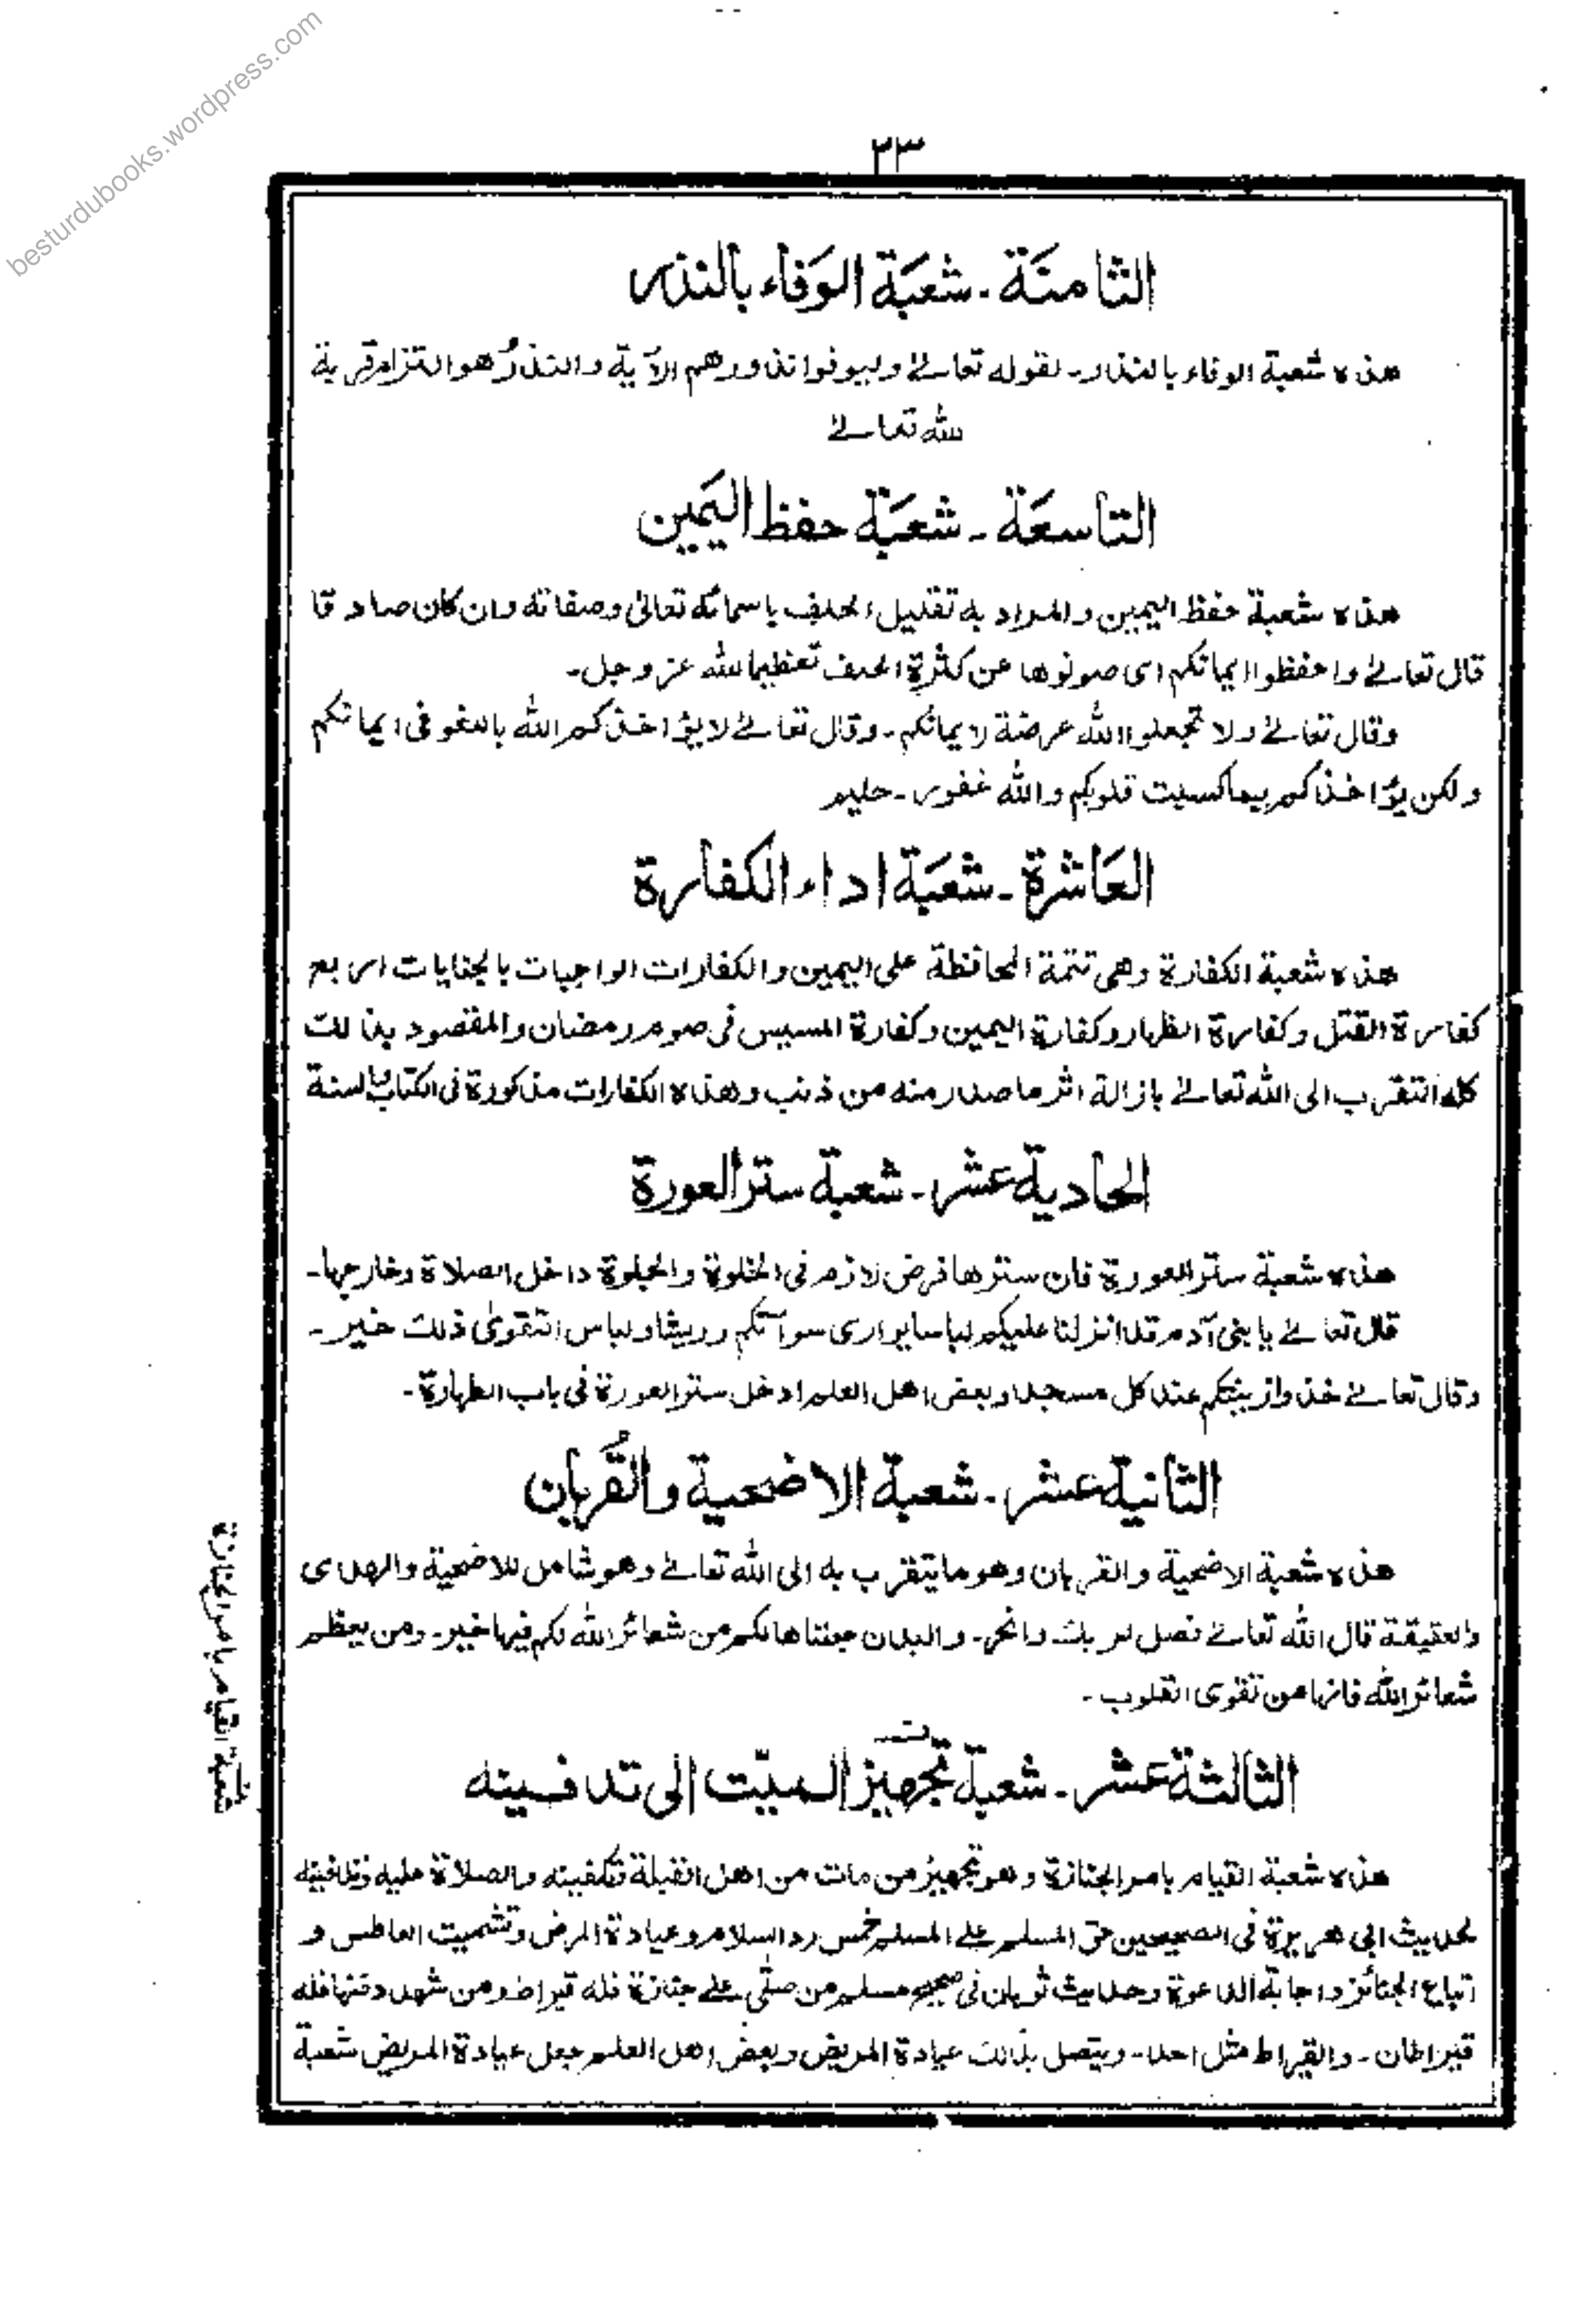 besturdubooks.wordpress.com
٣٣
الثامنَة ـ شعبَة الوَفاء بالنذر
هذه شعبة الوفاء بالنذر ـ لقوله تعالےٰ وليوفوا نذورهم الآية والنذرُ هو التزام قربة
لله تعالےٰ
التاسعَة ـ شعبَة حفظ اليَمين
هذه شعبة حفظ اليمين والمراد به تقليل الحلف باسمائه تعالیٰ وصفاته وان كان صادقا
قال تعالےٰ واحفظوا ايمانكم ای صونوها عن كثرة الحلف تعظيما لله عز وجل ـ
وقال تعالےٰ ولا تجعلوا الله عرضة لايمانكم ـ وقال تعالےٰ لا يؤاخذكم الله باللغو فی ايمانكم
ولكن يؤاخذكم بما كسبت قلوبكم والله غفور ـ حليم
العَاشرة ـ شعبَة اداء الكفارة
هذه شعبة الكفارة وهی تتمة المحافظة علی اليمين والكفارات الواجبات بالجنايات اربع
كفارة القتل وكفارة الظهار وكفارة اليمين وكفارة المسيس فی صوم رمضان والمقصود بذالك
كله التقرب الی الله تعالےٰ بازالة اثر ما صدر منه من ذنب وهذه الكفارات مذكورة فی الكتاب والسنة
الحادية عشر ـ شعبة ستر العورة
هذه شعبة ستر العورة فان سترها فرض لازم فی الخلوة والجلوة داخل الصلاة وخارجها ـ
قال تعالےٰ يا بنی آدم قد انزلنا عليكم لباسا يواری سوآتكم وريشا ولباس التقویٰ ذلك خير ـ
وقال تعالےٰ خذوا زينتكم عند كل مسجد وبعض اهل العلم ادخل ستر العورة فی باب الطهارة ـ
الثانية عشر ـ شعبة الاضحية والقُربان
هذه شعبة الاضحية والقربان وهو ما يتقرب به الی الله تعالےٰ وهو شامل للاضحية والهدی
والعقيقة قال الله تعالےٰ فصل لربك وانحر ـ والبدن جعلناها لكم من شعائر الله لكم فيها خير ـ ومن يعظم
شعائر الله فانها من تقوی القلوب ـ
الثالثة عشر ـ شعبة تجهيز الميّت الی تدفينه
هذه شعبة القيام بامر الجنازة وهو تجهيز من مات من اهل القبلة وتكفينه والصلاة عليه وتدفينه
لحديث ابی هريرة فی الصحيحين حق المسلم علے المسلم خمس رد السلام وعيادة المرض وتشميت العاطس و
اتباع الجنائز واجابة الدعوة وحديث ثوبان فی صحيح مسلم من صلّی علے جنازة فله قيراط ومن شهد دفنها فله
قيراطان ـ والقيراط مثل احد ـ ويتصل بذالك عيادة المريض وبعض اهل العلم جعل عيادة المريض شعبة
شعبة القيام بامر الجنازة